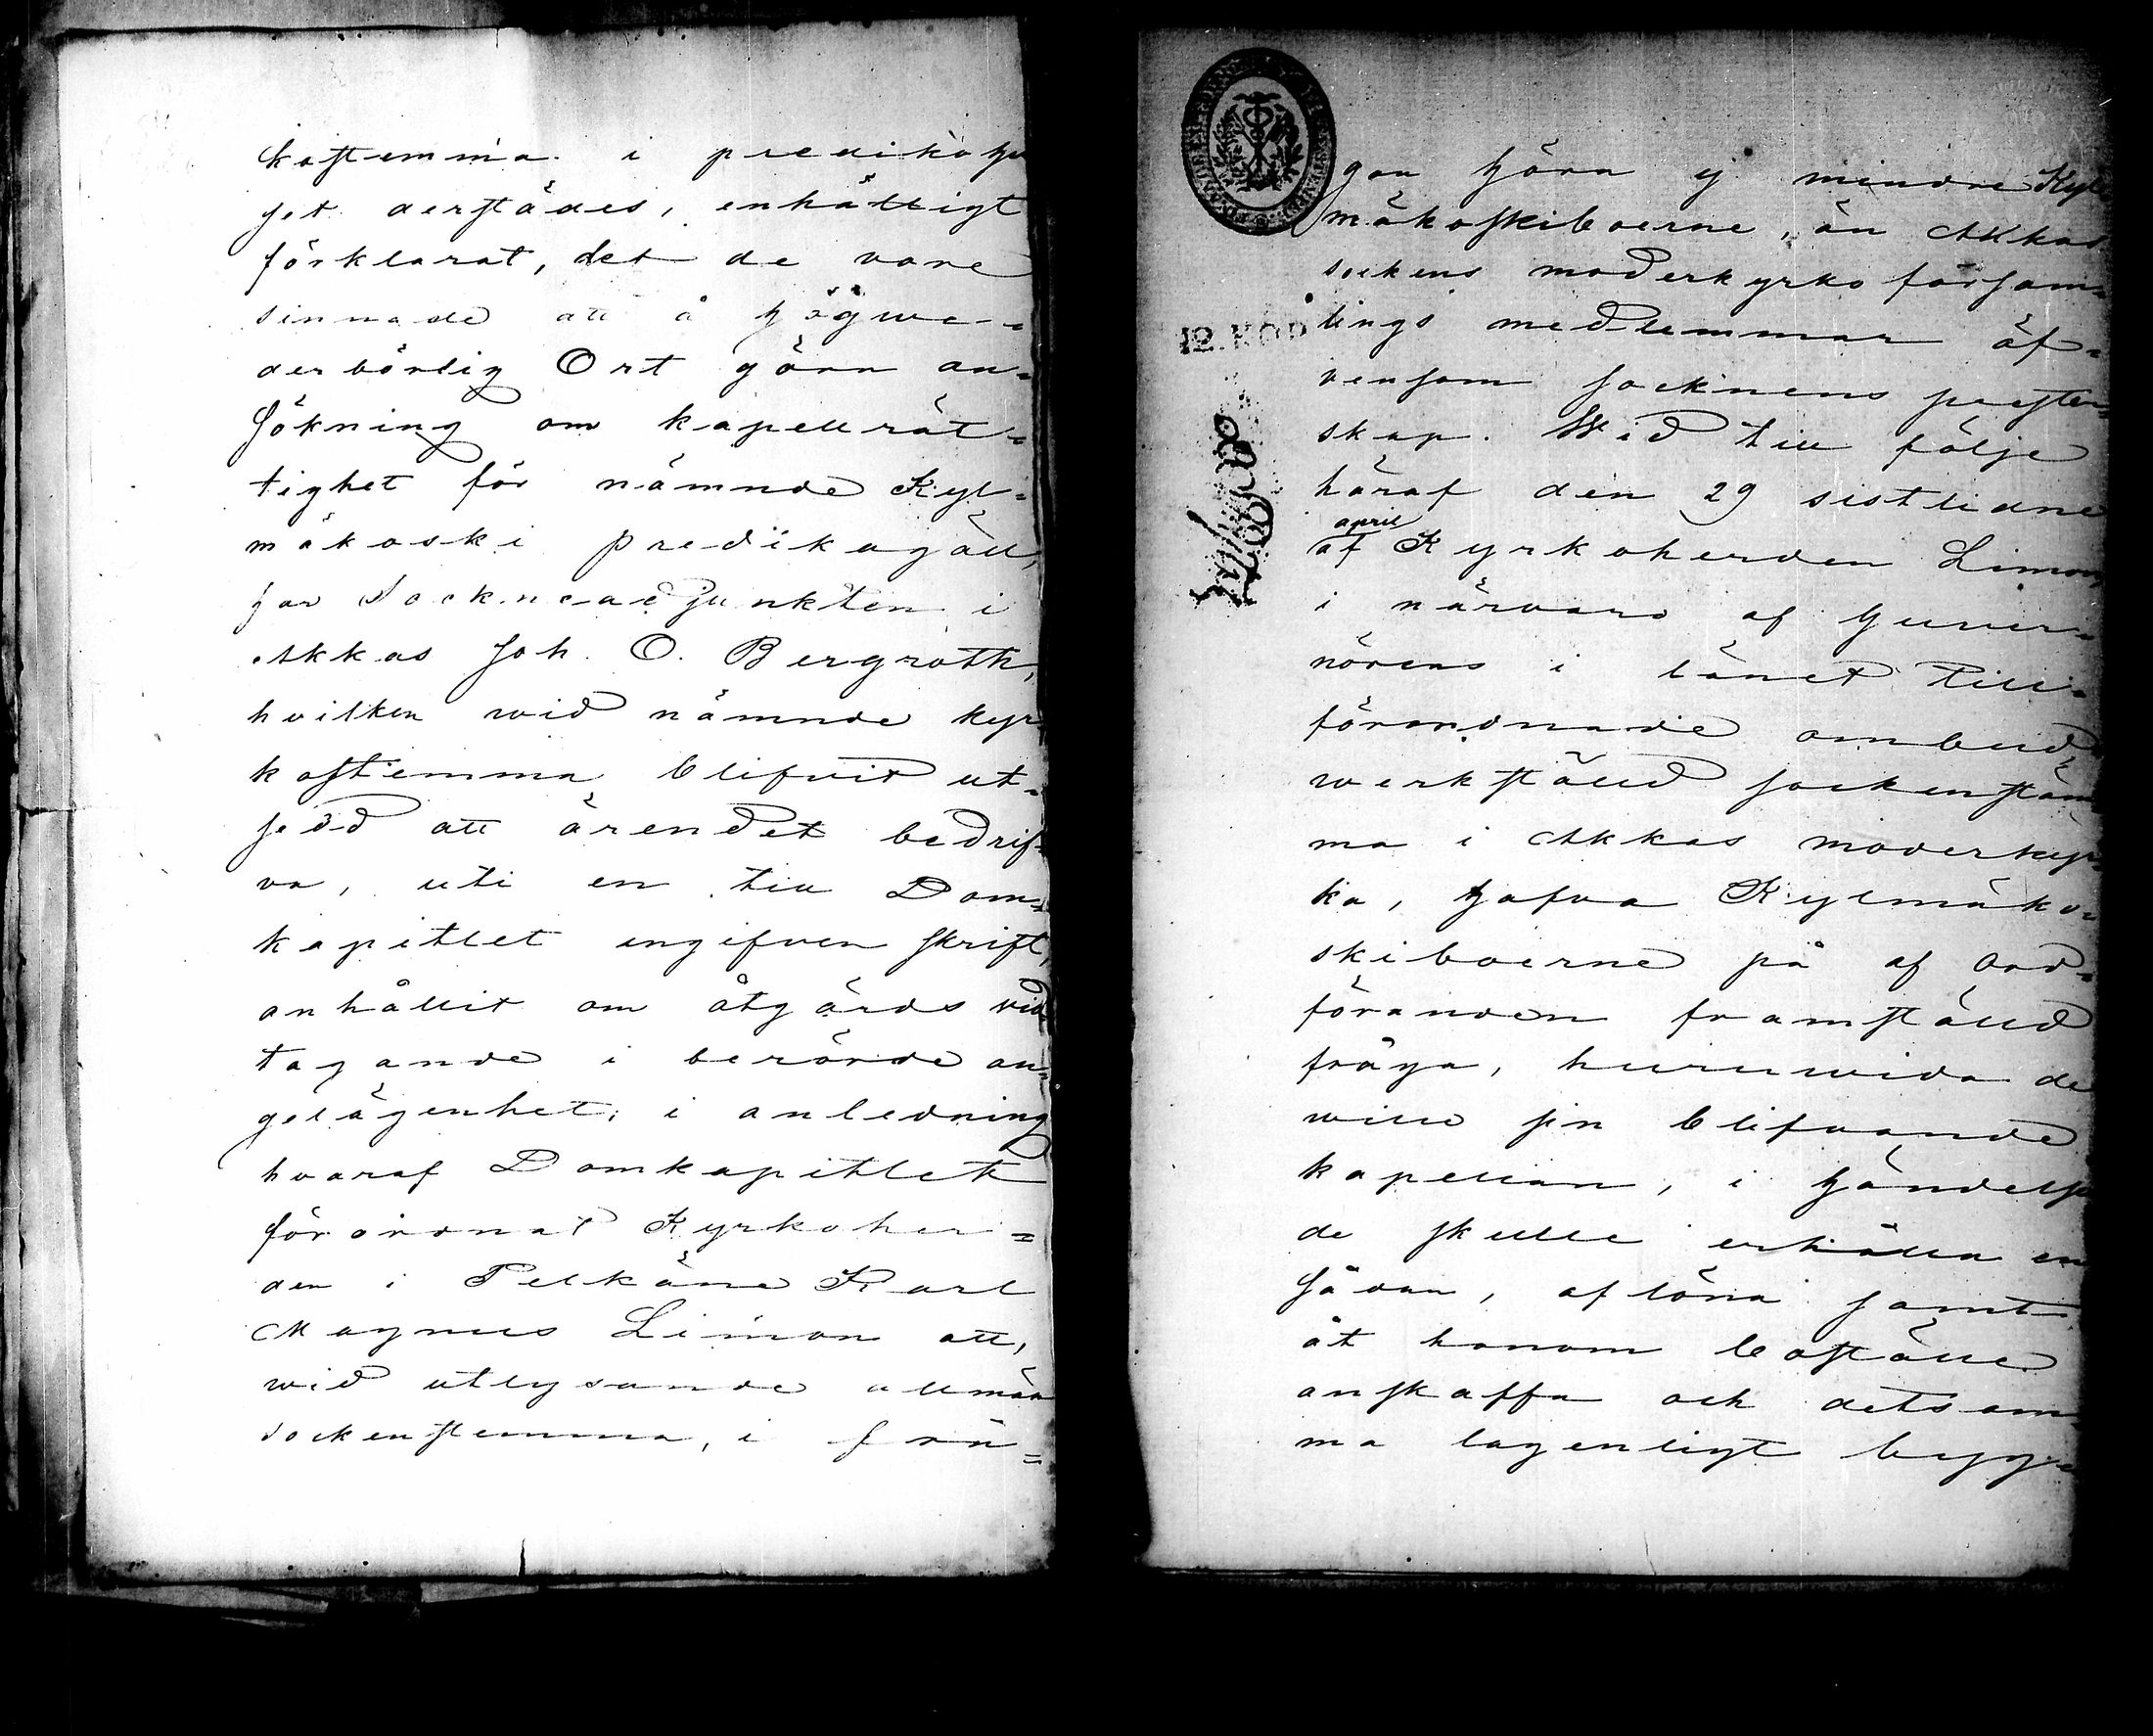 kostemma i predikohu
set derstädes, enhälligt
förklarat, det de vore
sinnade att å högwe-
derbörlig Ort göra an=
sökning om kapellrät=
tighet för nämnde Kyl=
mäkoski predikogäll,
har Sockneadjunkten i
Akkas Joh. O. Bergroth,
hvilken wid nämnde kyr
kostemma blifvit ut=
sedd att ärendet bedrif=
va, uti en till Dom=
kapitlet ingifven skrift,
anhållit om åtgärds vid
tagande i berörde an=
gelägenhet; i anledning
hvaraf Domkapitlet
förordnat Kyrkoher=
den i Pelkäne Karl
Magnus Limon att,
wid utlysande allmän
sockenstemma, i frå=
gan höra ej mindre Kyl
mäkoskiboerne, än Akkas
sockens moderkyrko försam=
lings medlemmar äf=
vensom socknens prester=
skap. Wid till följe
häraf den 29 sistlidne
april
af Kyrkoherden Limon,
i närvaro af Guver=
nörens i länet till=
förordnade ombud,
werkställd sockenstäm
ma i Akkas moderkyr=
ka, hafva Kylmäko=
skiboerne på af Ord=
föranden framställd
fråga, huruwida de
wille sin blifvande
kapellan, i händelse
de skulle erhålla en
sådan, aflöna samt
åt honom boställe
anskaffa och detsam
ma lagenligt bygga
12. KOP